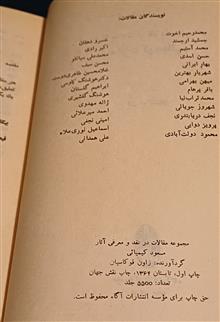 نویسندگان مقالات:
محمدرحیم اخوت
جمشید ارجمند
محمد اسلیم
حسن اسدی
بهار ایرانی
شهریار بهترین
میهن بهرامی
باقر پرهام
محمد تراب‌نیا
شهروز جویائی
نجف دریابندری
پرویز دوایی
محمود دولت‌آبادی
خسرو دهقان
اکبر رادی
محمدعلی سپانلو
محسن سیف
غلامحسین طاهری
دکتر هوشنگ کاوسی
ابراهیم گلستان
هوشنگ گلشیری
ژاله مهدوی
احمد میرعلائی
امیتی نجفی
اسماعیل نوری‌علاء
علی همدانی
مجموعه مقالات در نقد و معرفی آثار
مسعود کیمیائی
گردآورنده: زاون قوکاسیان
چاپ اول، تابستان ۱۳۶۴، چاپ نقش جهان
تعداد: ۵۵۰۰ جلد
حق چاپ برای مؤسسه انتشارات آگاه محفوظ است.
مقدمه